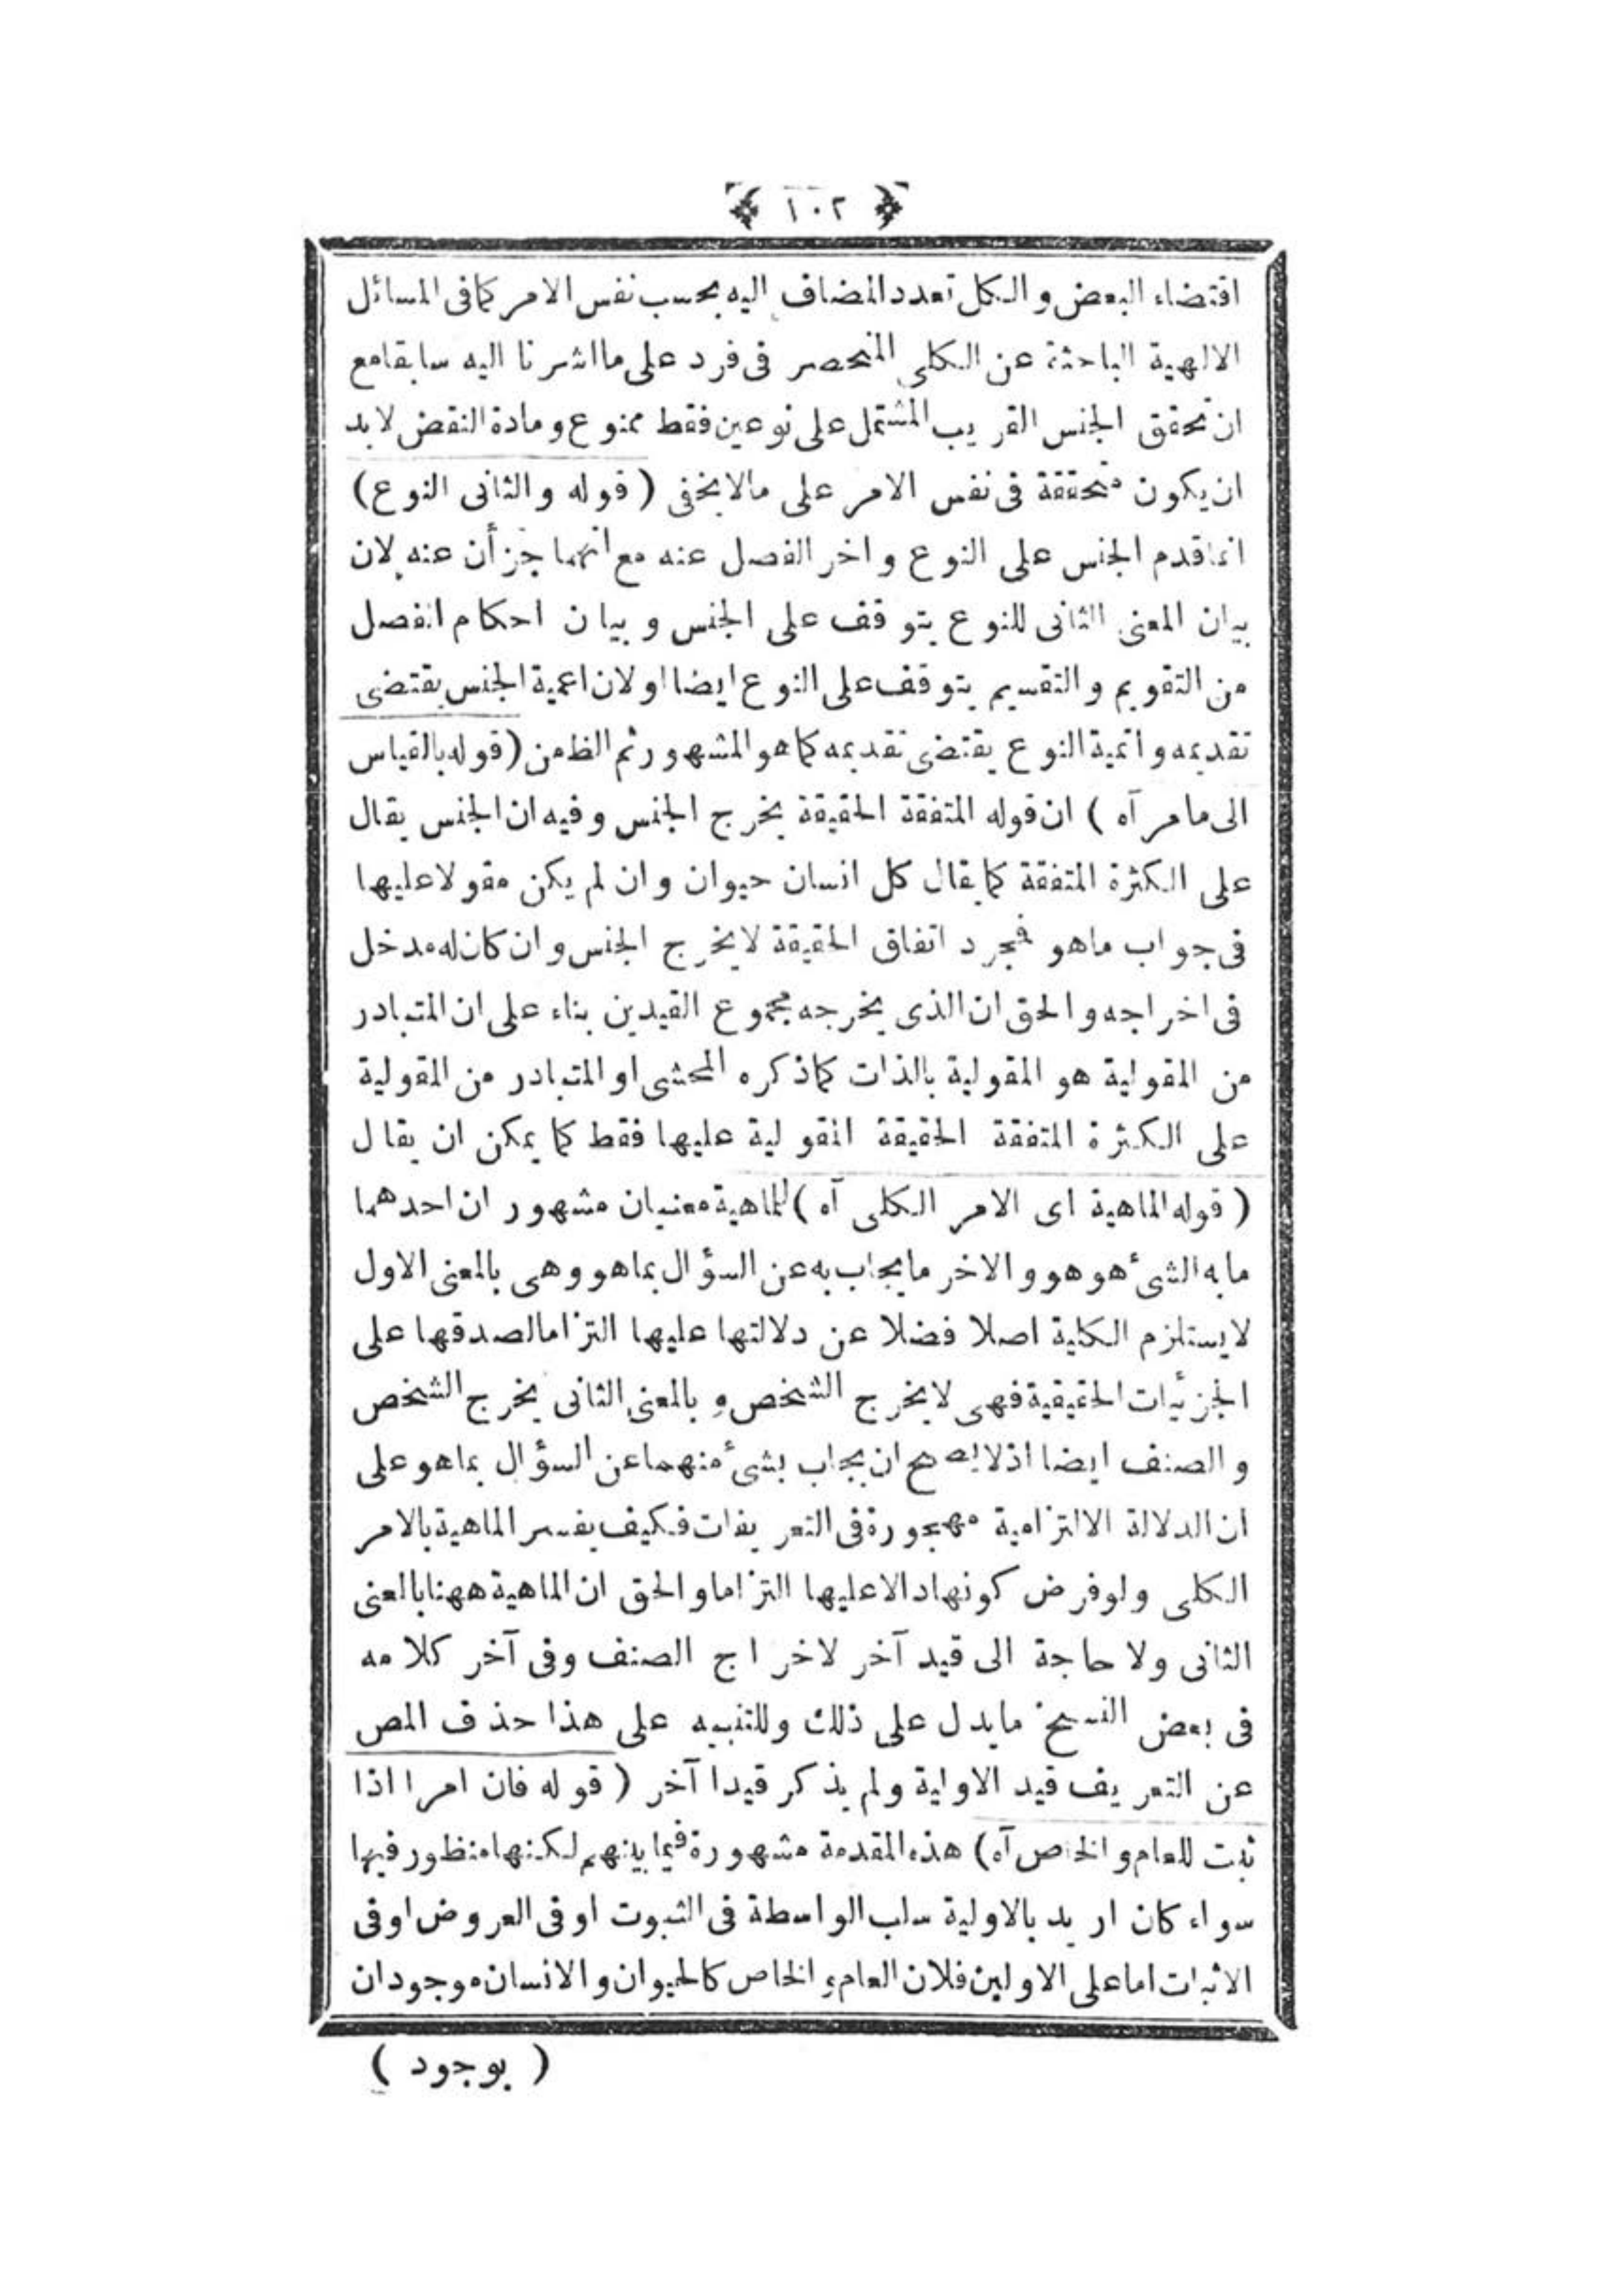 ﴿ ١٠٢ ﴾
اقتضاء البعض والكل تعدد المضاف اليه بحسب نفس الامر كما فى المسائل
الالهية الباحثة عن الكلى المنحصر فى فرد على ما اشرنا اليه سابقا مع
ان تحقق الجنس القريب المشتمل على نوعين فقط ممنوع ومادة النقض لابد
ان يكون متحققة فى نفس الامر على مالا يخفى ( قوله والثانى النوع )
انما قدم الجنس على النوع واخر الفصل عنه مع انهما جزأن عنه لان
بيان المعنى الثانى للنوع يتوقف على الجنس وبيان احكام الفصل
من التقويم والتقسيم يتوقف على النوع ايضا او لان اعمية الجنس يقتضى
تقديمه واتمية النوع يقتضى تقديمه كما هو المشهور ثم الظ من ( قوله بالقياس
الى ما مر آه ) ان قوله المتفقة الحقيقة يخرج الجنس وفيه ان الجنس يقال
على الكثرة المتفقة كما يقال كل انسان حيوان وان لم يكن مقولا عليها
فى جواب ماهو فمجرد اتفاق الحقيقة لا يخرج الجنس وان كان له مدخل
فى اخراجه والحق ان الذى يخرجه مجموع القيدين بناء على ان المتبادر
من المقولية هو المقولية بالذات كما ذكره المحشى او المتبادر من المقولية
على الكثرة المتفقة الحقيقة المقولية عليها فقط كما يمكن ان يقال
( قوله الماهية اى الامر الكلى آه ) للماهية معنيان مشهوران احدهما
ما به الشئ هو هو والاخر ما يجاب به عن السؤال بماهو وهى بالمعنى الاول
لا يستلزم الكلية اصلا فضلا عن دلالتها عليها التزاما لصدقها على
الجزئيات الحقيقية فهى لا يخرج الشخص وبالمعنى الثانى يخرج الشخص
والصنف ايضا اذ لا يصح ان يجاب بشئ منهما عن السؤال بماهو على
ان الدلالة الالتزامية مهجورة فى التعريفات فكيف يفسر الماهية بالامر
الكلى ولو فرض كونها دالا عليها التزاما والحق ان الماهية ههنا بالمعنى
الثانى ولا حاجة الى قيد آخر لاخراج الصنف وفى آخر كلامه
فى بعض النسخ ما يدل على ذلك وللتنبيه على هذا حذف المص
عن التعريف قيد الاولية ولم يذكر قيدا آخر ( قوله فان امرا اذا
ثبت للعام والخاص آه ) هذه المقدمة مشهورة فيما بينهم لكنها منظور فيها
سواء كان اريد بالاولية سلب الواسطة فى الثبوت او فى العروض او فى
الاثبات اما على الاولين فلان العام والخاص كالحيوان والانسان موجودان
( بوجود )